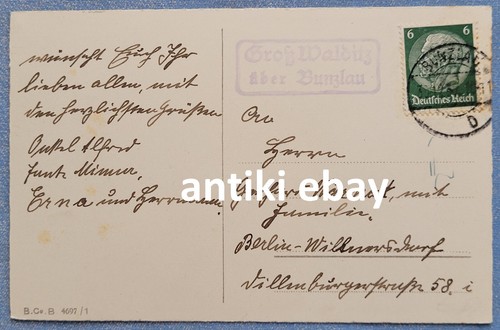 wünscht Euch Ihr
lieben allen, mit
den herzlichsten Grüßen
Onkel Alfred
Tante Minna,
Erna und Herrmann.
Groß Walditz
über Bunzlau
6 6
Deutsches Reich
BUNZLAU
b
An
Herrn
mit
Familie
Berlin-Willmersdorf
Dillenburgerstraße 58. i
antiki ebay
B.Ge.B 4697/1